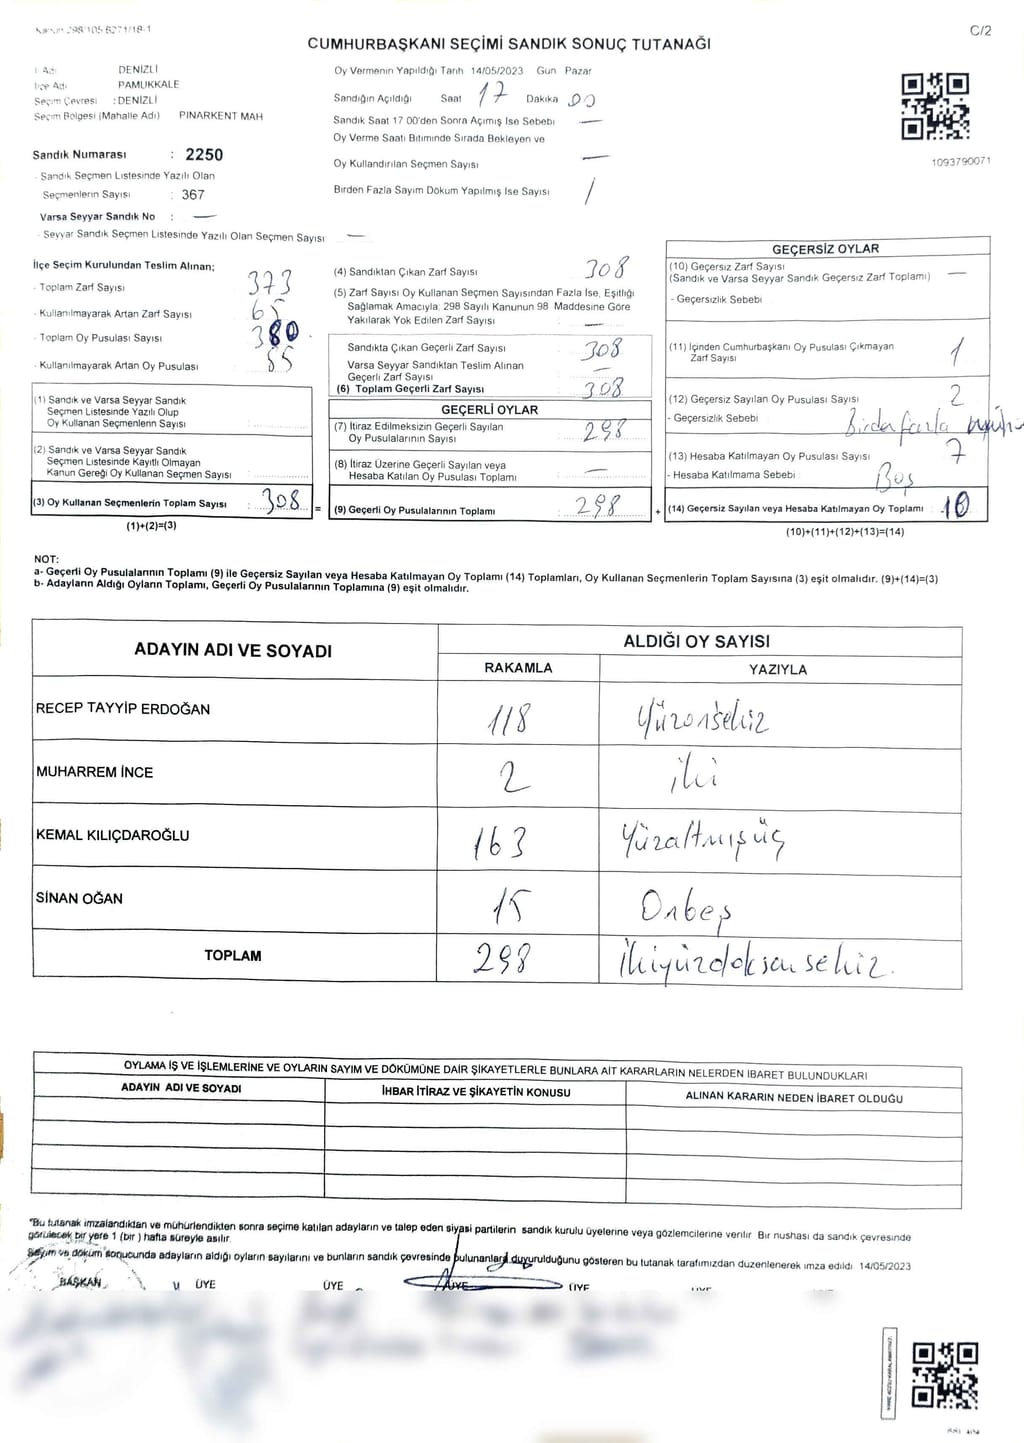 C/2
CUMHURBAŞKANI SEÇİMİ SANDIK SONUÇ TUTANAĞI
İl Adı DENİZLİ
İlçe Adı PAMUKKALE
Seçim Çevresi : DENİZLİ
Seçim Bölgesi (Mahalle Adı) PINARKENT MAH
Sandık Numarası : 2250
- Sandık Seçmen Listesinde Yazılı Olan
Seçmenlerin Sayısı : 367
Varsa Seyyar Sandık No : —
- Seyyar Sandık Seçmen Listesinde Yazılı Olan Seçmen Sayısı —
Oy Vermenin Yapıldığı Tarih 14/05/2023 Gün Pazar
Sandığın Açıldığı Saat 17 Dakika 00
Sandık Saat 17 00'den Sonra Açımış İse Sebebi —
Oy Verme Saati Bitiminde Sırada Bekleyen ve
Oy Kullandırılan Seçmen Sayısı —
Birden Fazla Sayım Döküm Yapılmış İse Sayısı /
1093790071
İlçe Seçim Kurulundan Teslim Alınan;
- Toplam Zarf Sayısı 373
- Kullanılmayarak Artan Zarf Sayısı 65
- Toplam Oy Pusulası Sayısı 380
- Kullanılmayarak Artan Oy Pusulası 55
(1) Sandık ve Varsa Seyyar Sandık
Seçmen Listesinde Yazılı Olup
Oy Kullanan Seçmenlerin Sayısı :
(2) Sandık ve Varsa Seyyar Sandık
Seçmen Listesinde Kayıtlı Olmayan
Kanun Gereği Oy Kullanan Seçmen Sayısı :
(3) Oy Kullanan Seçmenlerin Toplam Sayısı : 308 =
(1)+(2)=(3)
(4) Sandıktan Çıkan Zarf Sayısı 308
(5) Zarf Sayısı Oy Kullanan Seçmen Sayısından Fazla İse, Eşitliği
Sağlamak Amacıyla; 298 Sayılı Kanunun 98 Maddesine Göre
Yakılarak Yok Edilen Zarf Sayısı : —
Sandıkta Çıkan Geçerli Zarf Sayısı : 308
Varsa Seyyar Sandıktan Teslim Alınan
Geçerli Zarf Sayısı : —
(6) Toplam Geçerli Zarf Sayısı : 308
GEÇERLİ OYLAR
(7) İtiraz Edilmeksizin Geçerli Sayılan
Oy Pusulalarının Sayısı : 298
(8) İtiraz Üzerine Geçerli Sayılan veya
Hesaba Katılan Oy Pusulası Toplamı : —
(9) Geçerli Oy Pusulalarının Toplamı : 298 +
GEÇERSİZ OYLAR
(10) Geçersiz Zarf Sayısı
(Sandık ve Varsa Seyyar Sandık Geçersiz Zarf Toplamı) —
- Geçersizlik Sebebi
(11) İçinden Cumhurbaşkanı Oy Pusulası Çıkmayan
Zarf Sayısı 1
(12) Geçersiz Sayılan Oy Pusulası Sayısı 2
- Geçersizlik Sebebi Birden fazla
(13) Hesaba Katılmayan Oy Pusulası Sayısı 7
- Hesaba Katılmama Sebebi Boş
(14) Geçersiz Sayılan veya Hesaba Katılmayan Oy Toplamı : 10
(10)+(11)+(12)+(13)=(14)
NOT:
a- Geçerli Oy Pusulalarının Toplamı (9) ile Geçersiz Sayılan veya Hesaba Katılmayan Oy Toplamı (14) Toplamları, Oy Kullanan Seçmenlerin Toplam Sayısına (3) eşit olmalıdır. (9)+(14)=(3)
b- Adayların Aldığı Oyların Toplamı, Geçerli Oy Pusulalarının Toplamına (9) eşit olmalıdır.
ADAYIN ADI VE SOYADI ALDIĞI OY SAYISI
RAKAMLA YAZIYLA
RECEP TAYYİP ERDOĞAN 118 Yüzonsekiz
MUHARREM İNCE 2 iki
KEMAL KILIÇDAROĞLU 163 Yüzaltmışüç
SİNAN OĞAN 15 Onbeş
TOPLAM 298 İkiyüzdoksansekiz.
OYLAMA İŞ VE İŞLEMLERİNE VE OYLARIN SAYIM VE DÖKÜMÜNE DAİR ŞİKAYETLERLE BUNLARA AİT KARARLARIN NELERDEN İBARET BULUNDUKLARI
ADAYIN ADI VE SOYADI İHBAR İTİRAZ VE ŞİKAYETİN KONUSU ALINAN KARARIN NEDEN İBARET OLDUĞU
"Bu tutanak imzalandıktan ve mühürlendikten sonra seçime katılan adayların ve talep eden siyasi partilerin sandık kurulu üyelerine veya gözlemcilerine verilir Bir nushası da sandık çevresinde
görülecek bir yere 1 (bir ) hafta süreyle asılır.
Seçim ve döküm sonucunda adayların aldığı oyların sayılarını ve bunların sandık çevresinde bulunanlara duyurulduğunu gösteren bu tutanak tarafımızdan düzenlenerek imza edildi 14/05/2023
BAŞKAN ÜYE ÜYE ÜYE ÜYE